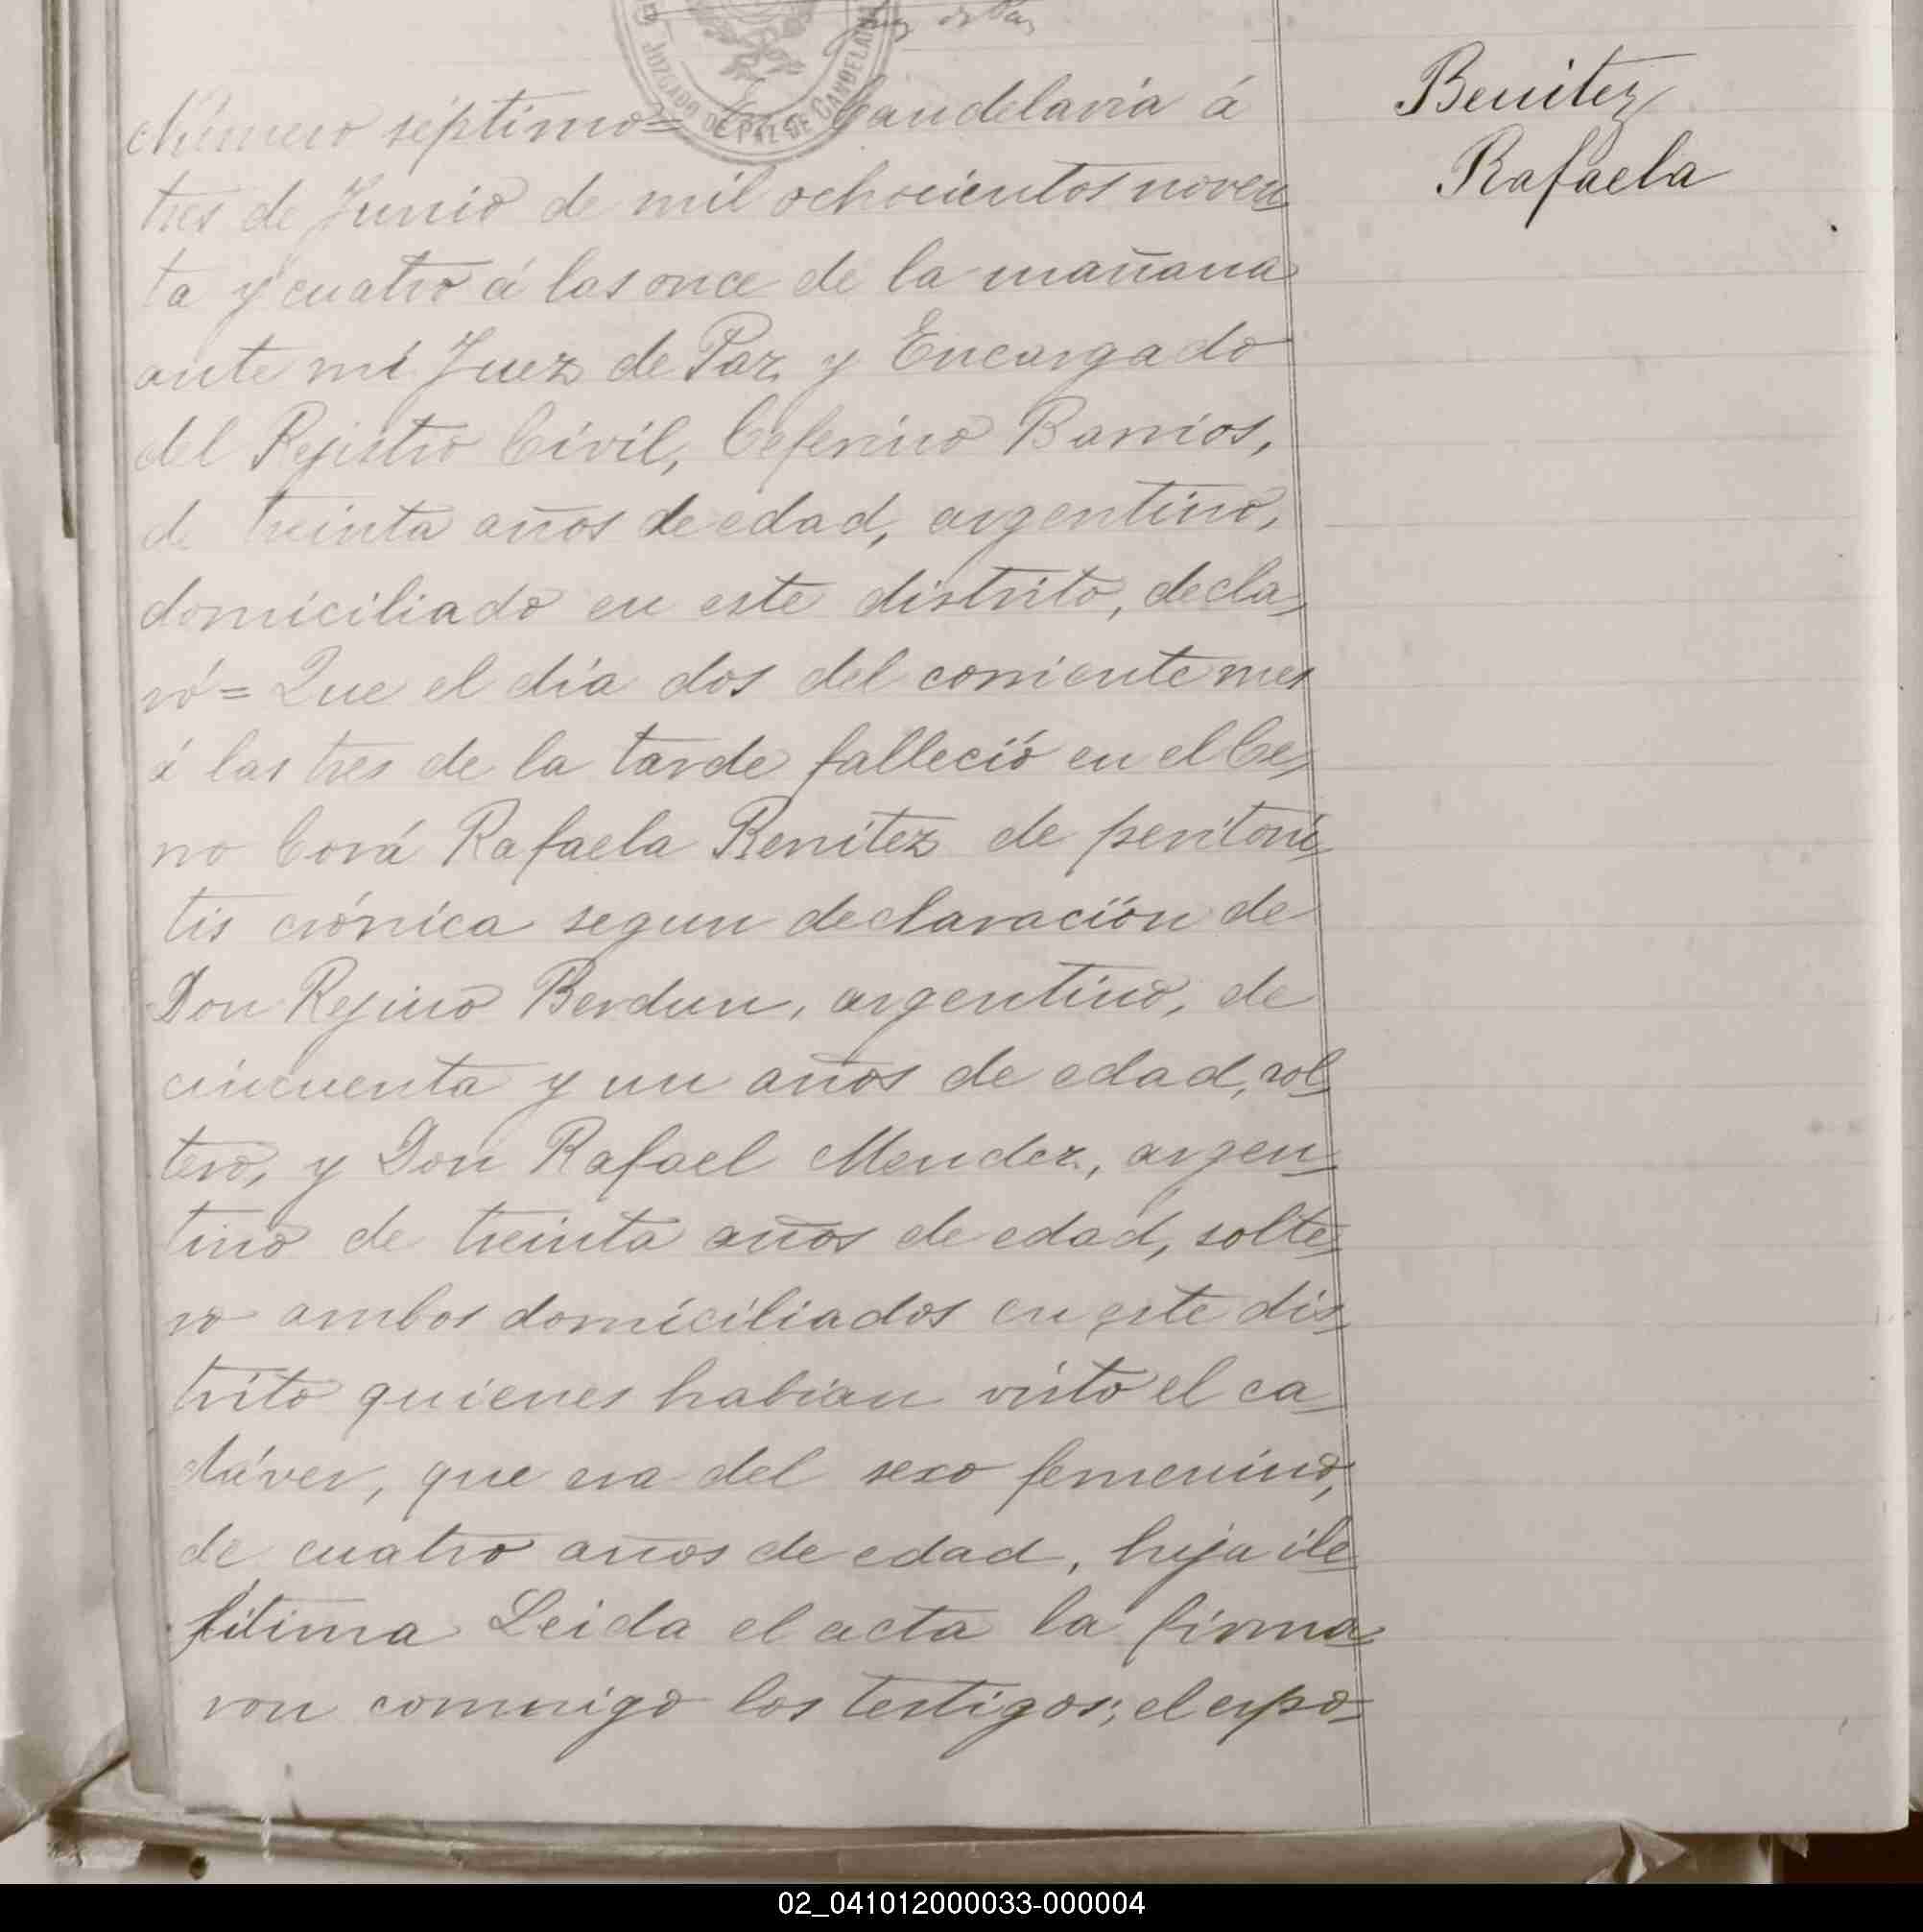 Juez de Paz
JUZGADO DE PAZ DE CANDELARIA
Benitez
Rafaela
Número séptimo = En Candelaria á
tres de Junio de mil ochocientos noven
ta y cuatro á las once de la mañana
ante mí Juez de Paz y Encargado
del Rejistro Civil, Ceferino Barrios,
de treinta años de edad, argentino,
domiciliado en este distrito, decla
ró = Que el día dos del corriente mes
á las tres de la tarde falleció en el Ce
rro Corá Rafaela Benitez de peritoni
tis crónica segun declaración de
Don Rejino Berdun, argentino, de
cincuenta y un años de edad, sol
tero, y Don Rafael Mendez, argen
tino de treinta años de edad, solte
ro ambos domiciliados en este dis
trito quienes habian visto el ca
dáver, que era del sexo femenino,
de cuatro años de edad, hija ile
jitima Leida el acta la firma
ron conmigo los testigos; el espo
02_041012000033-000004